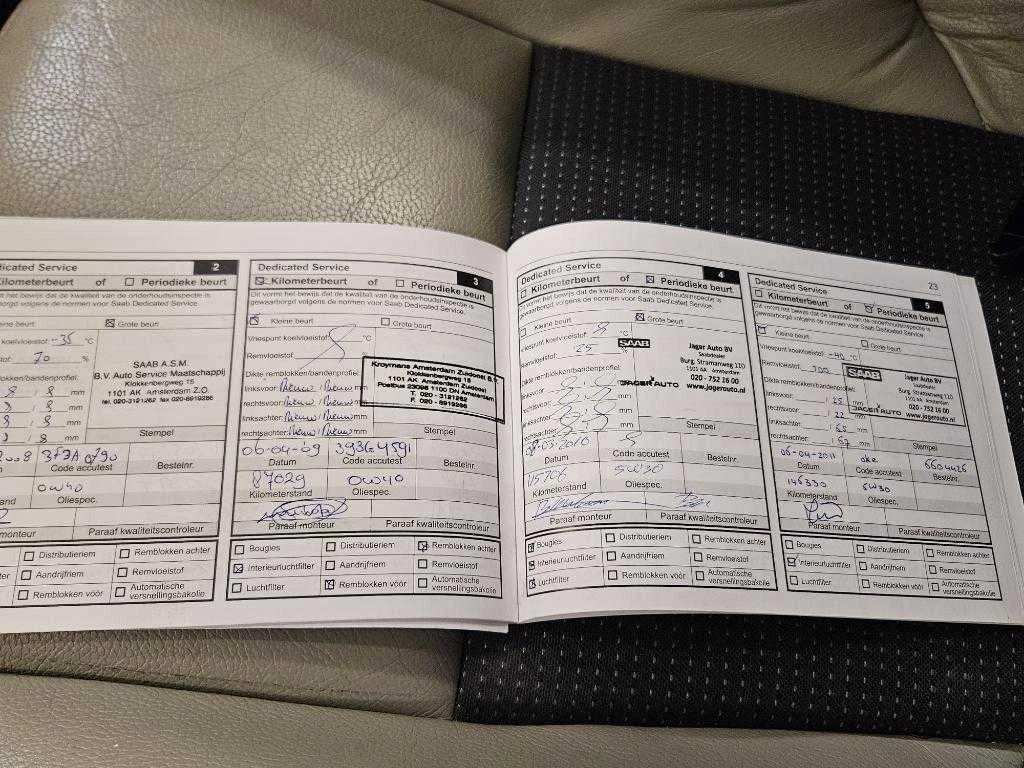 dicated Service 2
Kilometerbeurt of Periodieke beurt
it het bewijs dat de kwaliteit van de onderhoudsinspectie is
gewaarborgd volgens de normen voor Saab Dedicated Service.
eine beurt Grote beurt
koelvloeistof -35 °C
70 %
SAAB A.S.M.
B.V. Auto Service Maatschappij
Klokkenbergweg 15
1101 AK Amsterdam Z.O.
tel. 020-3121262 fax 020-6919286
lokken/bandenprofiel:
8 / 8 mm
/ 8 mm
/ 8 mm
/ 8 mm
Stempel
2008
Code accutest Bestelnr.
0W40
stand Oliespec.
Paraaf kwaliteitscontroleur
Distributieriem Remblokken achter
Interieurluchtfilter Aandrijfriem Remvloeistof
Remblokken vóór Automatische versnellingsbakolie
Dedicated Service 3
Kilometerbeurt of Periodieke beurt
Dit vormt het bewijs dat de kwaliteit van de onderhoudsinspectie is
gewaarborgd volgens de normen voor Saab Dedicated Service.
Kleine beurt Grote beurt
Vriespunt koelvloeistof °C
Remvloeistof %
Kroymans Amsterdam Zuidoost B.V.
Klokkenbergweg 15
1101 AK Amsterdam Zuidoost
Postbus 23098 1100 DN Amsterdam
T. 020 - 3121262
F. 020 - 6919286
Dikte remblokken/bandenprofiel:
linksvoor: Nieuw / Nieuw mm
rechtsvoor: Nieuw / Nieuw mm
linksachter: Nieuw / Nieuw mm
rechtsachter: Nieuw / Nieuw mm
Stempel
06-04-09 39364591
Datum Code accutest Bestelnr.
87029 0W40
Kilometerstand Oliespec.
Paraaf monteur Paraaf kwaliteitscontroleur
Bougies Distributieriem Remblokken achter
Interieurluchtfilter Aandrijfriem Remvloeistof
Luchtfilter Remblokken vóór Automatische versnellingsbakolie
Dedicated Service 4
Kilometerbeurt of Periodieke beurt
Dit vormt het bewijs dat de kwaliteit van de onderhoudsinspectie is
gewaarborgd volgens de normen voor Saab Dedicated Service.
Kleine beurt Grote beurt
Vriespunt koelvloeistof °C
Remvloeistof
SAAB
Jager Auto BV
Saabdealer
Burg. Stramanweg 110
1101 AA Amsterdam
020 - 752 16 00
www.jagerauto.nl
JAGER AUTO
Dikte remblokken/bandenprofiel:
linksvoor: mm
rechtsvoor: mm
linksachter: mm
rechtsachter: mm
Stempel
Datum Code accutest Bestelnr.
5W30
Kilometerstand Oliespec.
Paraaf monteur Paraaf kwaliteitscontroleur
Bougies Distributieriem Remblokken achter
Interieurluchtfilter Aandrijfriem Remvloeistof
Luchtfilter Remblokken vóór Automatische versnellingsbakolie
23
Dedicated Service 5
Kilometerbeurt of Periodieke beurt
Dit vormt het bewijs dat de kwaliteit van de onderhoudsinspectie is
gewaarborgd volgens de normen voor Saab Dedicated Service.
Kleine beurt Grote beurt
Vriespunt koelvloeistof -40 °C
Remvloeistof
SAAB
Jager Auto BV
Saabdealer
Burg. Stramanweg 110
1101 AA Amsterdam
020 - 752 16 00
www.jagerauto.nl
JAGER AUTO
Dikte remblokken/bandenprofiel:
linksvoor: mm
rechtsvoor: mm
linksachter: mm
rechtsachter: mm
Stempel
06-04-2011 oke 6604426
Datum Code accutest Bestelnr.
146330 5W30
Kilometerstand Oliespec.
Paraaf monteur Paraaf kwaliteitscontroleur
Bougies Distributieriem Remblokken achter
Interieurluchtfilter Aandrijfriem Remvloeistof
Luchtfilter Remblokken vóór Automatische versnellingsbakolie